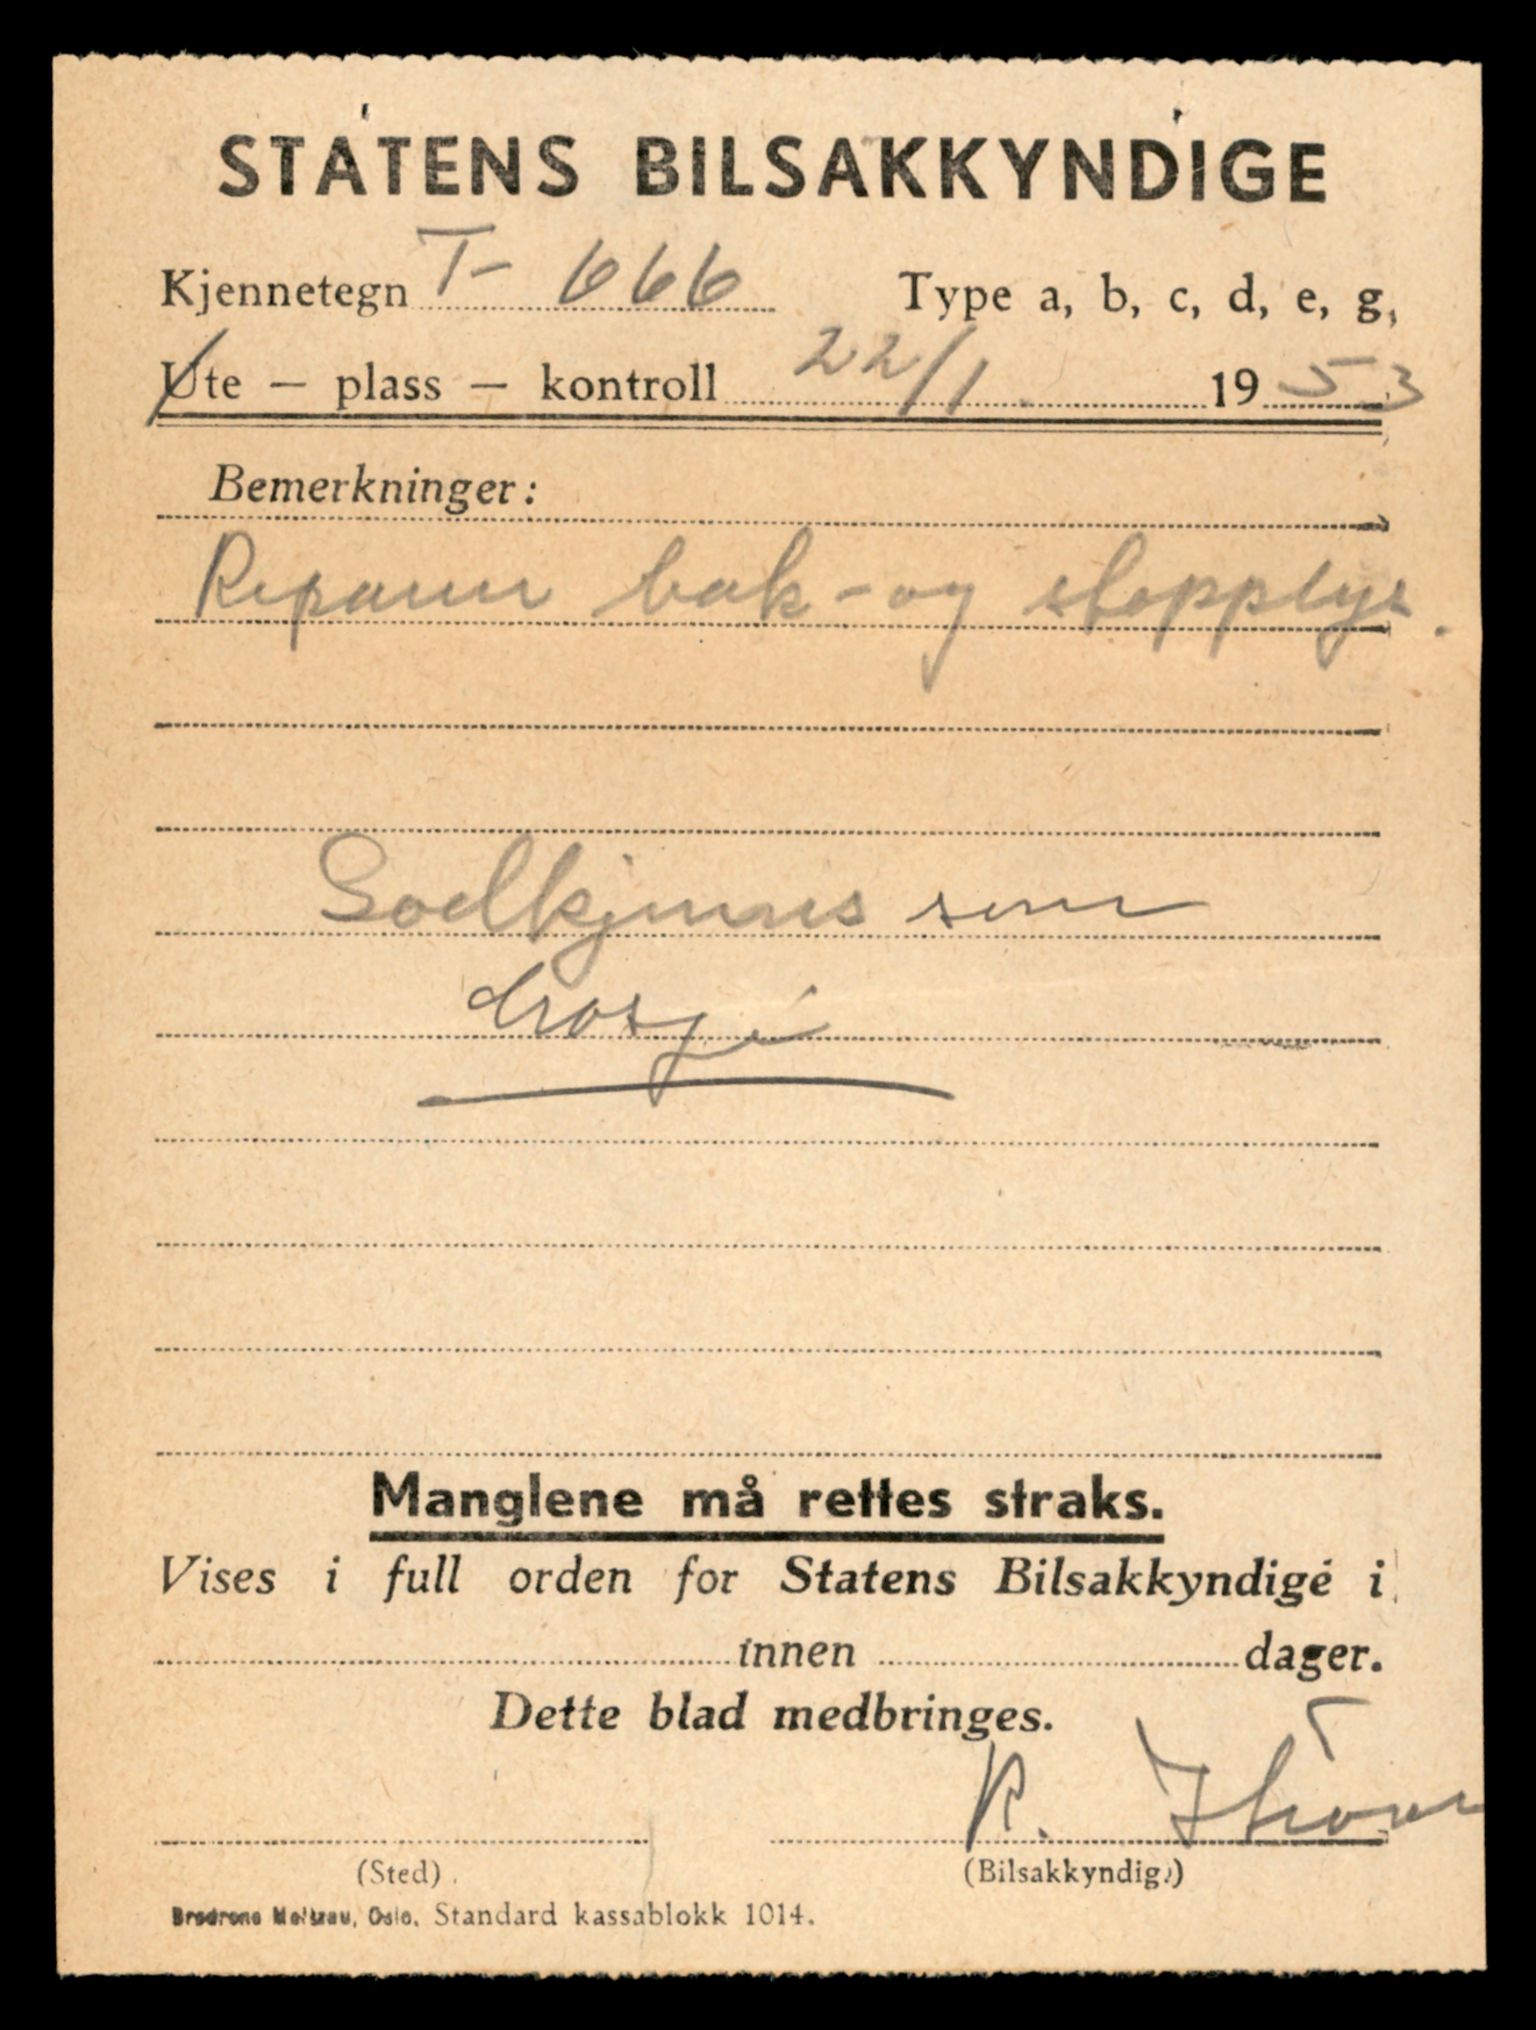 STATENS BILSAKKYNDIGE
Kjennetegn T- 666 Type a, b, c, d, e, g,
Ute — plass — kontroll 22/1. 1953
Bemerkninger:
Reparer bak- og stopplys.
Godkjennes som
drosje
Manglene må rettes straks.
Vises i full orden for Statens Bilsakkyndige i
innen dager.
Dette blad medbringes.
R.
(Sted) (Bilsakkyndig.)
Brødrene Oslo. Standard kassablokk 1014.